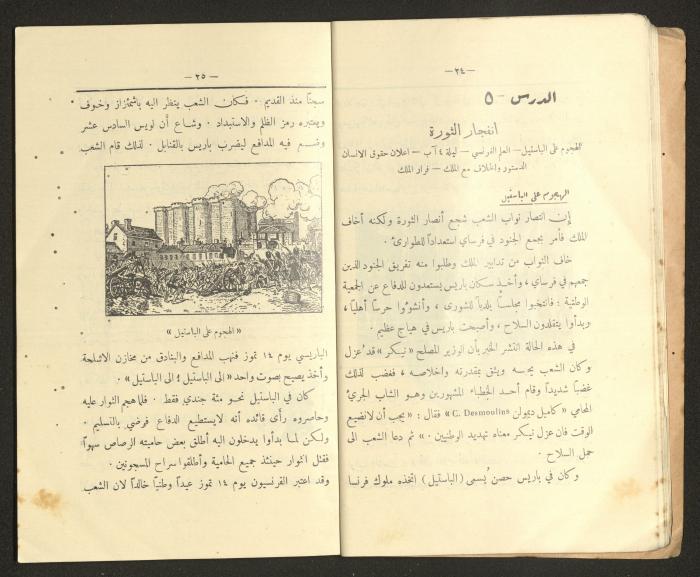 — ٢٤ —
الدرس — ٥
انفجار الثورة
الهجوم على الباستيل — العلم الفرنسي — ليلة ٤ آب — اعلان حقوق الانسان
الدستور والخلاف مع الملك — فرار الملك
الهجوم على الباستيل
إن انتصار نواب الشعب شجع أنصار الثورة ولكنه أخاف
الملك فأمر بجمع الجنود في فرساي استعداداً للطوارئ ·
خاف النواب من تدابير الملك وطلبوا منه تفريق الجنود الذين
جمعهم في فرساي ، وأخذ سكان باريس يستعدون للدفاع عن الجمعية
الوطنية : فانتخبوا مجلساً بلدياً للشورى ، وأنشؤوا حرساً أهلياً ،
وبدأوا يتقلدون السلاح ، وأصبحت باريس في هياج عظيم ·
في هذه الحالة انتشر الخبر بأن الوزير المصلح « نيكر » قد عزل
وكان الشعب يحبه ويثق بمقدرته واخلاصه ، فغضب لذلك
غضباً شديداً وقام أحد الخطباء المشهورين وهو الشاب الجريء
المحامي « كاميل ديمولن C. Desmoulins » فقال : « يجب أن لانضيع
الوقت فان عزل نيكر معناه تهديد الوطنيين · » ثم دعا الشعب الى
حمل السلاح ·
وكان في باريس حصن يُسمى (الباستيل) اتخذه ملوك فرنسا
— ٢٥ —
سجناً منذ القديم · فكان الشعب ينظر اليه باشمئزاز وخوف
ويعتبره رمز الظلم والاستبداد · وشاع أن لويس السادس عشر
وضع فيه المدافع ليضرب باريس بالقنابل · لذلك قام الشعب
« الهجوم على الباستيل »
الباريسي يوم ١٤ تموز فنهب المدافع والبنادق من مخازن الاسلحة
وأخذ يصيح بصوت واحد « الى الباستيل ؛ الى الباستيل » ·
كان في الباستيل نحو مئة جندي فقط · فلما هجم الثوار عليه
وحاصروه رأى قائده أنه لايستطيع الدفاع فرضي بالتسليم ·
ولكن لما بدأوا يدخلون اليه أطلق بعض حاميته الرصاص سهواً
فقتل الثوار حينئذ جميع الحامية وأطلقوا سراح المسجونين ·
وقد اعتبر الفرنسيون يوم ١٤ تموز عيداً وطنياً خالداً لان الشعب